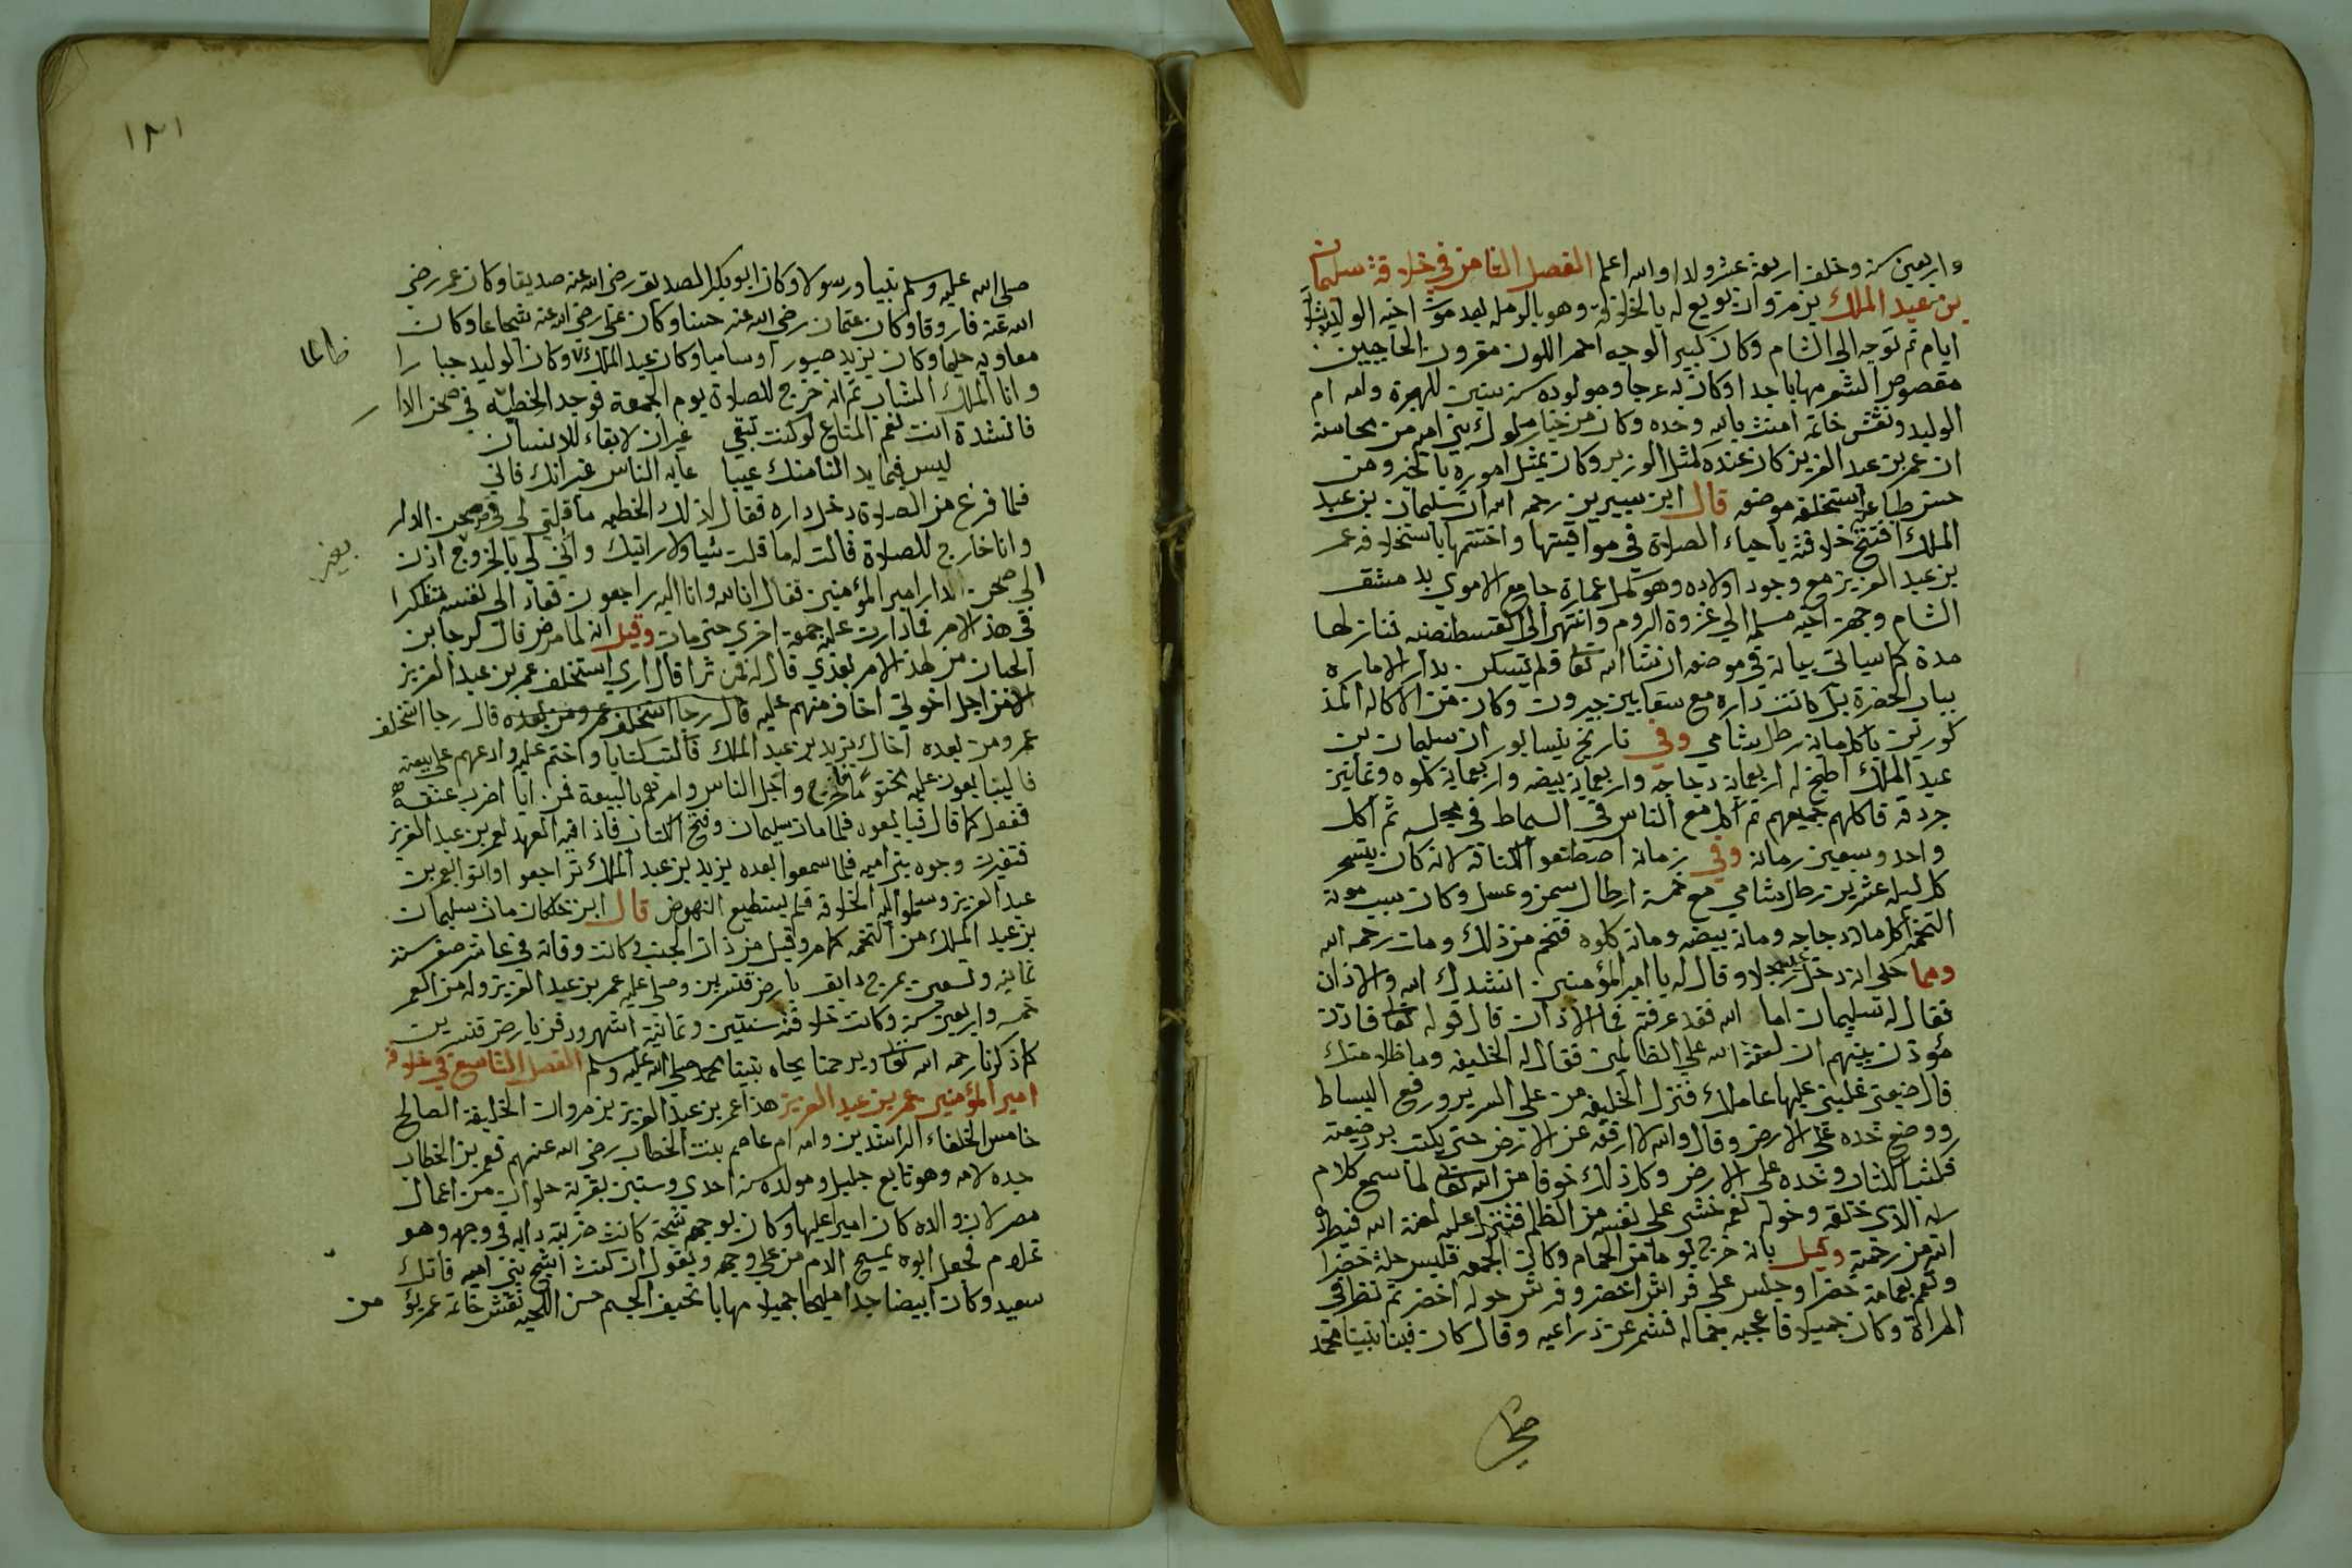 واربعين سنة وخلف اربعة عشر ولدا والله اعلم الفصل الثامن في خلافة سليمان
بن عبد الملك بن مروان بويع له بالخلافة وهو بالرملة بعد موت اخيه الوليد بثلاثة
ايام ثم توجه الي الشام وكان كبير الوجه احمر اللون مقرون الحاجبين
مقصوص الشعر مهابا جدا وكان به عرجا ومولوده سنة ستين للهجرة وامه ام
الوليد ونقش خاتمه امنت بالله وحده وكان من خيار ملوك بني اميه من محاسنه
ان عمر بن عبد العزيز كان عنده كمثل الوزير وكان يمثل اموره بالخير ومن
حسن طباعه استخلفه موضعه قال ابن سيرين رحمه الله ان سليمان بن عبد
الملك افتتح خلافته باحياء الصلاة في مواقيتها واختتمها باستخلافه عمر
بن عبد العزيز مع وجود اولاده وهو كمل عمارة جامع الاموي بدمشق
الشام وجهز اخيه مسلمه الي غزوة الروم وانتهي الي القسطنطنيه فنازلها
مدة كما سياتي بيانه في موضعه ان شا الله تعالى ولم يسكن بدار الاماره
بباب الخضرة بل كانت داره مع سقايه جيرون وكان من الاكاله المذ
كورين ياكل مائة رطل شامي وفي تاريخ نيسابور ان سليمان بن
عبد الملك اطبخ له اربعمائة دجاجه واربعمائة بيضه واربعمائة كلوه وثمانين
جردقه فاكلهم جميعهم ثم اكل مع الناس في السماط في مجلسه ثم اكل
واحد وسبعين رمانه وفي زمانه اصطنعوا الكنافة لانه كان يتسحر
كل ليله عشرين رطل شامي مع خمسة ارطال سمن وعسل وكان سبب موته
التخمه اكل مائة دجاجه ومائة بيضه ومائة كلوه فتخم من ذلك ومات رحمه الله
ومما حكي انه دخل عليه رجلا وقال له يا امير المؤمنين انشدك الله والاذان
فقال له سليمان اما الله فقد عرفته فما الاذان قال قوله تعالى فاذن
مؤذن بينهم ان لعنة الله علي الظالمين فقال له الخليفه وما ظلامتك
قال ضيعتي غلبني عليها عاملك فنزل الخليفه من علي السرير ورفع البساط
ووضع خده علي الارض وقال والله لا ارفعه عن الارض حتى يكتب برد ضيعته
فكتب الكتاب وخده علي الارض وكل ذلك خوفا من الله تعالى لما سمع كلام
الله الذي خلقه وخوله نعمه خشي علي نفسه من الظلم فتنزل عليه لعنة الله فيطرد
الله من رحمته وقيل بانه خرج يوما من الحمام وكان الجمعه فلبس حلة خضرا
وتعمم بعمامة خضرا وجلس علي فراش اخضر وفرش حوله اخضر ثم نظر في
المراة وكان جميلا فاعجبه جماله فشمر عن ذراعيه وقال كان فينا نبينا محمد
صلى
١٣١
صلي الله عليه وسلم نبيا ورسولا وكان ابو بكر الصديق رضي الله عنه صديقا وكان عمر رضي
الله عنه فاروقا وكان عثمان رضي الله عنه حييا وكان علي رضي الله عنه شجاعا وكان
معاويه حليما وكان يزيد صبورا وساميا وكان عبد الملك وكان الوليد جبارا
وانا الملك الشاب ثم انه خرج للصلاة يوم الجمعة فوجد الخطيه في صحن الدار
فانشدة انت نعم المتاع لو كنت تبقي غير ان لا بقاء للانسان
ليس فيما بدا لنا منك عيبا عابه الناس غير انك فاني
فلما فرغ من الصلاة دخل داره فقال لذلك الخطيه ما قلتي لي في صحن الدار
وانا خارج للصلاة قالت له ما قلت شيا ولا رايتك واني لي بالخروج اذن
الي صحن الدار امير المؤمنين فقال انا لله وانا اليه راجعون فعاد الي نفسه متفكرا
في هذ الامر فما دارت عليه جمعة اخري حتى مات وقيل انه لما مرض قال لرجا بن
الحيان من لهذ الامر بعدي قال له فمن ترا قال اري استخلف عمر بن عبد العزيز
الا من اجل اخوتي اخاف منهم عليه قال رجا استخلف عمر ومن بعده قال رجا استخلف
عمر ومن بعده اخاك يزيد بن عبد الملك فاكتب كتابا واختم عليه وادعهم علي بيعته
فاليبايعون عليه مختوما فاخرج واجل الناس وامرهم بالبيعة فمن ابا اضرب عنقه
ففعل كما قال فبايعوه فلما مات سليمان وفتح الكتاب فاذا فيه العهد لعمر بن عبد العزيز
فتغيرت وجوه بني اميه فلما سمعوا بعده يزيد بن عبد الملك تراجعوا واتوا لعمر بن
عبد العزيز وسلموا اليه الخلافه فلم يستطيع النهوض قال ابن خلكان مات سليمان
بن عبد الملك من التخمه كما مر وقيل من ذات الجنب وكانت وفاته في عاشر صفر سنة
ثمانيه وتسعين بمرج دابق بارض قنسرين وصلي عليه عمر بن عبد العزيز وله من العمر
خمسه واربعين سنه وكانت خلافته سنتين وثمانية اشهر ودفن بارض قنسرين
كما ذكرنا رحمه الله تعالى ويرحمنا بجاه نبينا محمد صلي الله عليه وسلم الفصل التاسع في خلافة
امير المؤمنين عمر بن عبد العزيز هذا عمر بن عبد العزيز بن مروان الخليفة الصالح
خامس الخلفاء الراشدين وامه ام عاصم بنت الخطاب رضي الله عنهم فعمر بن الخطاب
جده لامه وهو تابع جليل ومولده سنة احدي وستين بقرية حلوان من اعمال
مصر لان والده كان اميرا عليها وكان بوجهه شجة كانت ضربته دابه في وجهه وهو
غلام فجعل ابوه يمسح الدم من علي وجهه ويقول ان كنت اشج بني اميه فانك
سعيد وكان ابيضا جدا مليحا جميلا مهابا نحيف الجسم حسن اللحيه نقش خاتمه عمر يؤ
من
ظالما
بغير